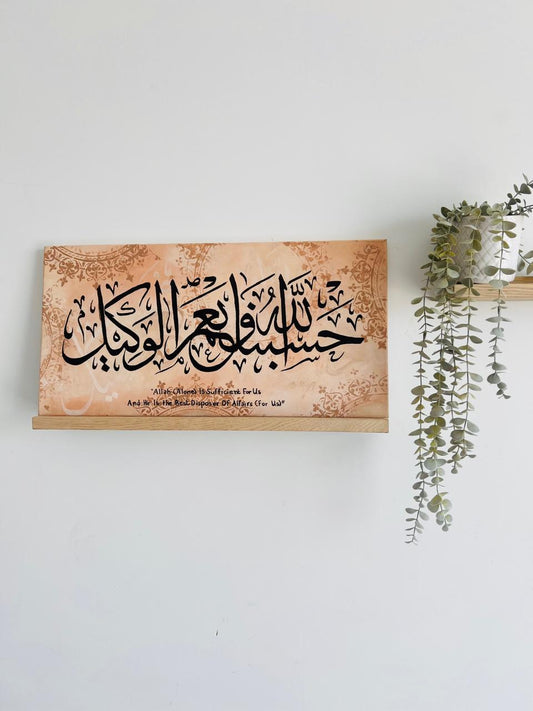 حسبنا الله ونعم الوكيل
"Allah (Alone) Is Sufficient For Us
And He Is the Best Disposer Of Affairs (For Us)"